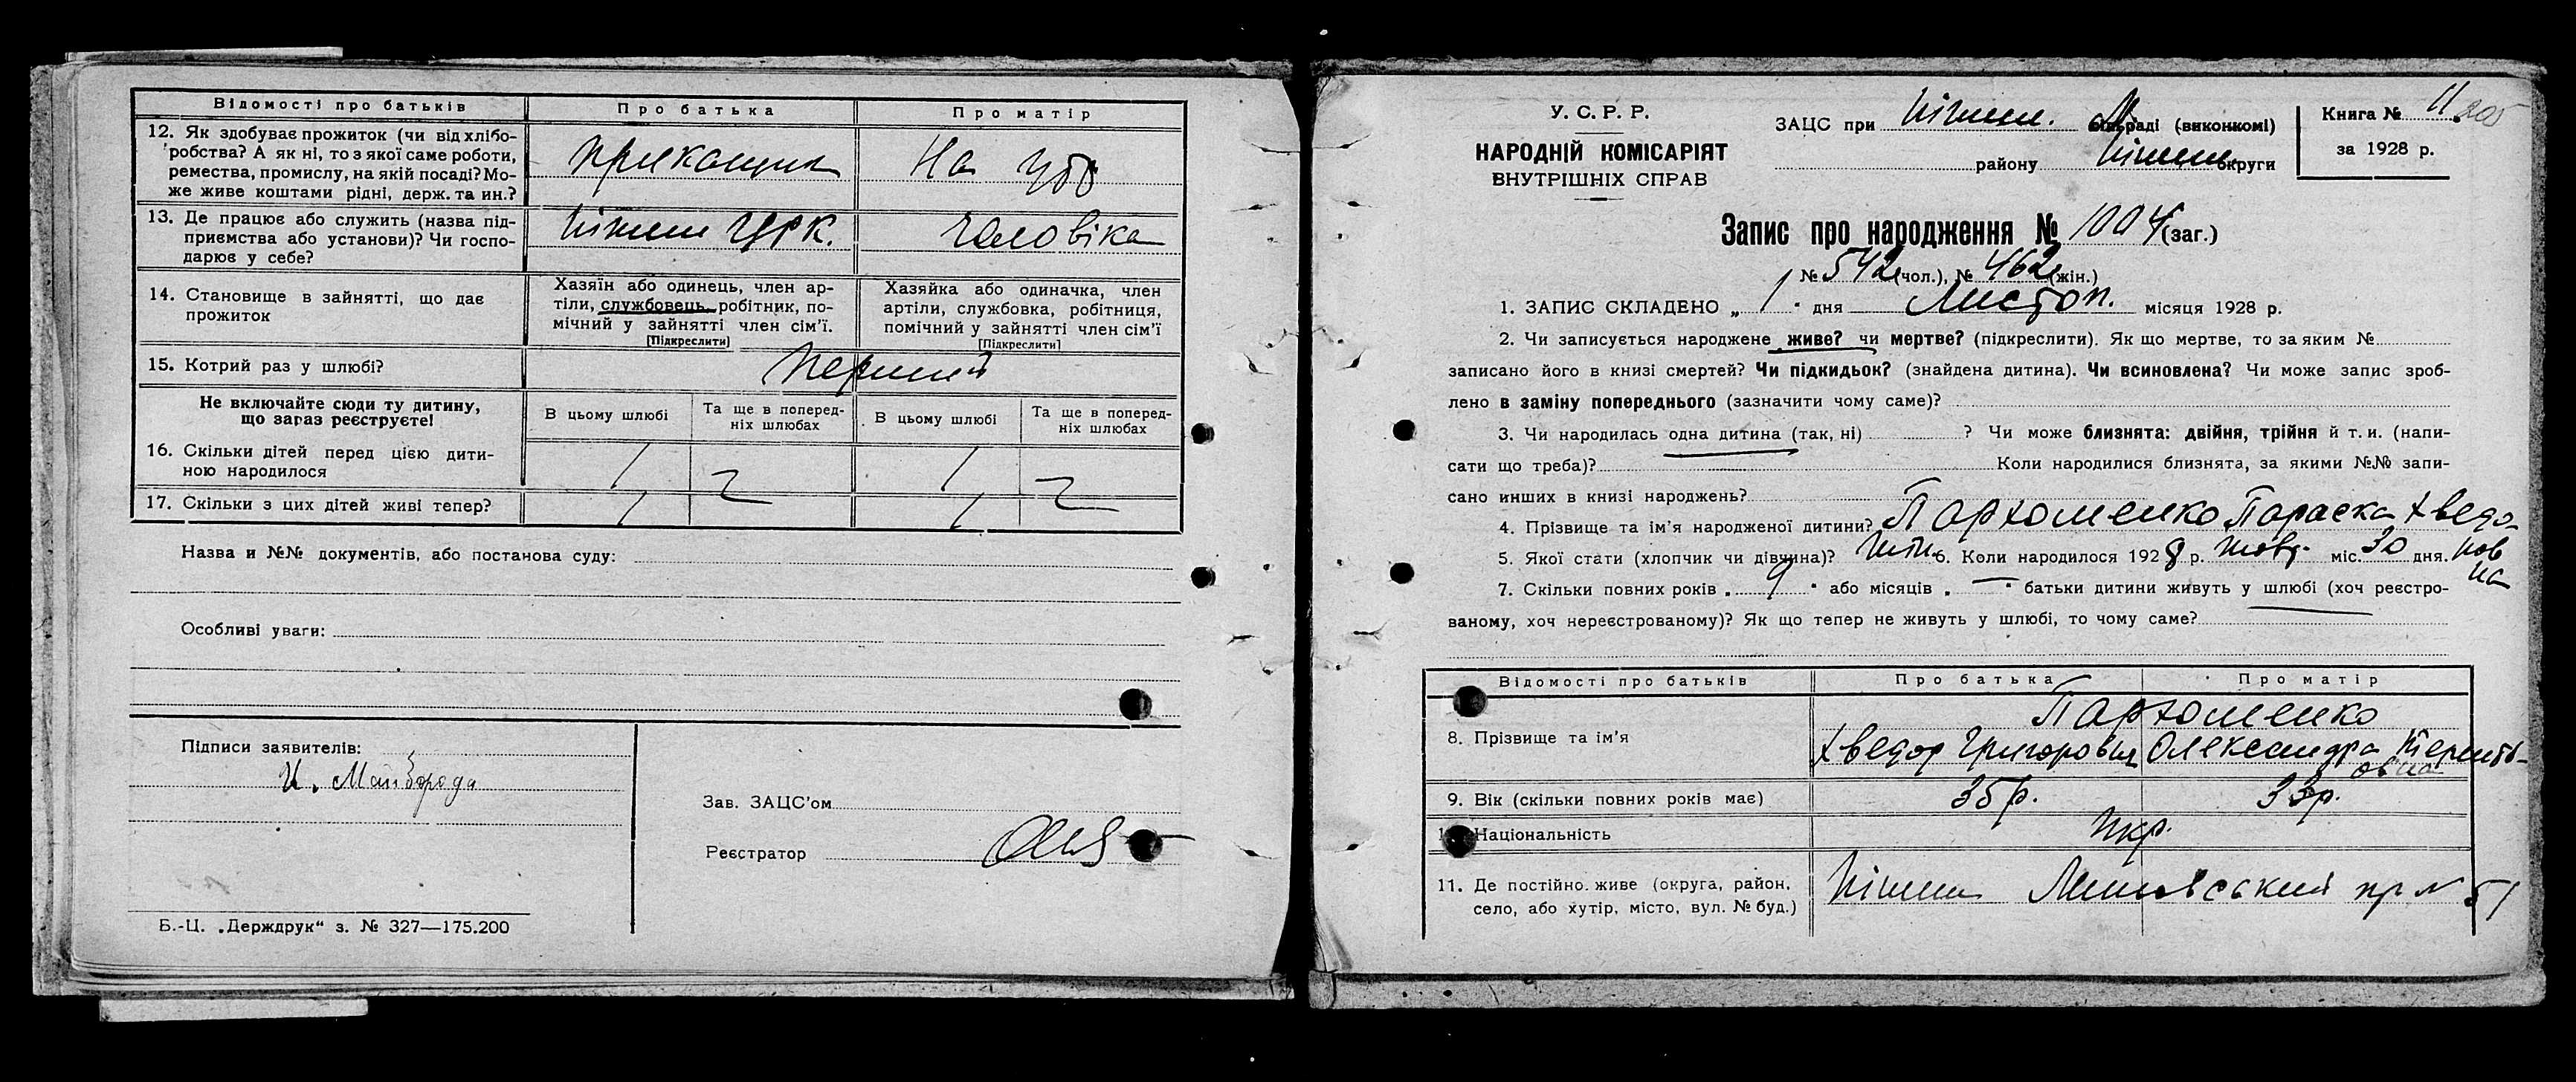 Відомості про батьків Про батька Про матір
12. Як здобуває прожиток (чи від хлібо-
робства? А як ні, то з якої саме роботи,
ремества, промислу, на якій посаді? Мо-
же живе коштами рідні, держ. та ин.?
прикащик На утр
13. Де працює або служить (назва під-
приємства або установи)? Чи госпо-
дарює у себе?
Ніжин ЦРК. чоловіка
14. Становище в зайнятті, що дає
прожиток
Хазяїн або одинець, член ар-
тіли, службовець, робітник, по-
мічний у зайнятті член сім'ї.
[Підкреслити]
Хазяйка або одиначка, член
артіли, службовка, робітниця,
помічний у зайнятті член сім'ї
[Підкреслити]
15. Котрий раз у шлюбі? перший
Не включайте сюди ту дитину,
що зараз реєструєте!
В цьому шлюбі Та ще в поперед-
ніх шлюбах В цьому шлюбі Та ще в поперед-
ніх шлюбах
16. Скільки дітей перед цією дити-
ною народилося 1 1
17. Скільки з цих дітей живі тепер? 1 1
Назва и №№ документів, або постанова суду:
Особливі уваги:
Підписи заявителів:
И. Майборода
Зав. ЗАЦС'ом
Реєстратор
Б.-Ц. „Держдрук“ з. № 327—175.200
У. С. Р. Р.
НАРОДНІЙ КОМІСАРІЯТ
ВНУТРІШНІХ СПРАВ
ЗАЦС при Ніжин. М сільраді (виконкомі)
району Ніжин. округи
Книга № 11 205
за 1928 р.
Запис про народження № 1004 (заг.)
№ 542 (чол.), № 462 (жін.)
1. ЗАПИС СКЛАДЕНО „ 1 " дня Листоп. місяця 1928 р.
2. Чи записується народжене живе? чи мертве? (підкреслити). Як що мертве, то за яким №
записано його в книзі смертей? Чи підкидьок? (знайдена дитина). Чи всиновлена? Чи може запис зроб-
лено в заміну попереднього (зазначити чому саме)?
3. Чи народилась одна дитина (так, ні) ? Чи може близнята: двійня, трійня й т. и. (напи-
сати що треба)? Коли народилися близнята, за якими №№ запи-
сано инших в книзі народжень?
4. Прізвище та ім'я народженої дитини? Пархоменко Параска Хведо-
ровна
5. Якої стати (хлопчик чи дівчина)? жін. 6. Коли народилося 1928 р. жовт. міс. 30 дня.
7. Скільки повних років „ 9 " або місяців „ — " батьки дитини живуть у шлюбі (хоч реєстро-
ваному, хоч нереєстрованому)? Як що тепер не живуть у шлюбі, то чому саме?
Відомості про батьків Про батька Про матір
8. Прізвище та ім'я
Пархоменко
Хведор Григорович Олександра Терентьи-
овна
9. Вік (скільки повних років має) 35 р. 33 р.
Національність Укр.
11. Де постійно живе (округа, район,
село, або хутір, місто, вул. № буд.)
Ніжин пр № 51